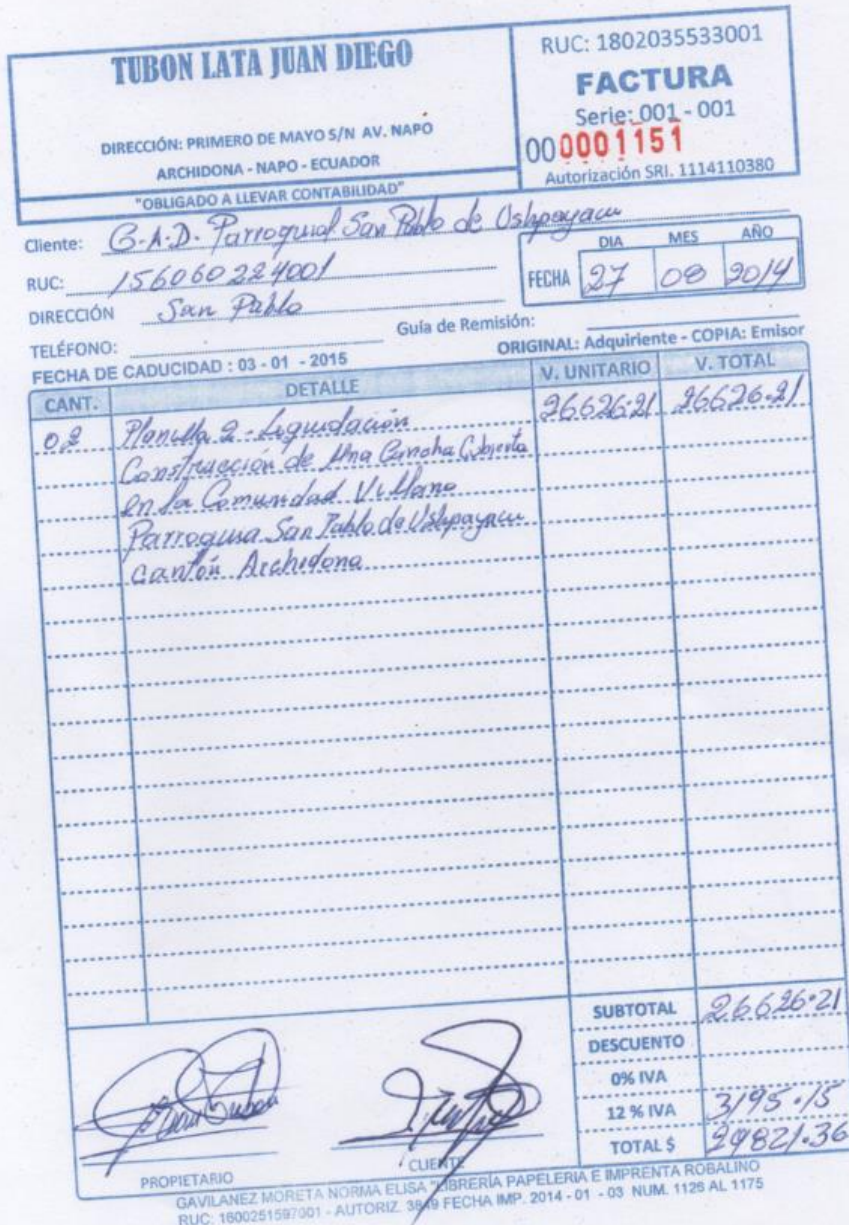 TUBON LATA JUAN DIEGO
DIRECCIÓN: PRIMERO DE MAYO S/N AV. NAPO
ARCHIDONA - NAPO - ECUADOR
"OBLIGADO A LLEVAR CONTABILIDAD"
RUC: 1802035533001
FACTURA
Serie: 001 - 001
000001151
Autorización SRI. 1114110380
Cliente: G.A.D. Parroquial San Pablo de Ushpayacu
RUC: 156060224001
DIRECCIÓN San Pablo
TELÉFONO:
Guía de Remisión:
DIA MES AÑO
FECHA 27 08 2014
FECHA DE CADUCIDAD : 03 - 01 - 2015
ORIGINAL: Adquiriente - COPIA: Emisor
CANT. DETALLE V. UNITARIO V. TOTAL
02 Planilla 2 - Liquidación 26626.21 26626.21
Construcción de Una Cancha Cubierta
en la Comunidad Villano
Parroquia San Pablo de Ushpayacu
Cantón Archidona
SUBTOTAL 26626.21
DESCUENTO
0% IVA
12 % IVA 3195.15
TOTAL $ 29821.36
PROPIETARIO CLIENTE
GAVILANEZ MORETA NORMA ELISA "LIBRERÍA PAPELERIA E IMPRENTA ROBALINO
RUC: 1600251597001 - AUTORIZ. 3849 FECHA IMP. 2014 - 01 - 03 NUM. 1126 AL 1175